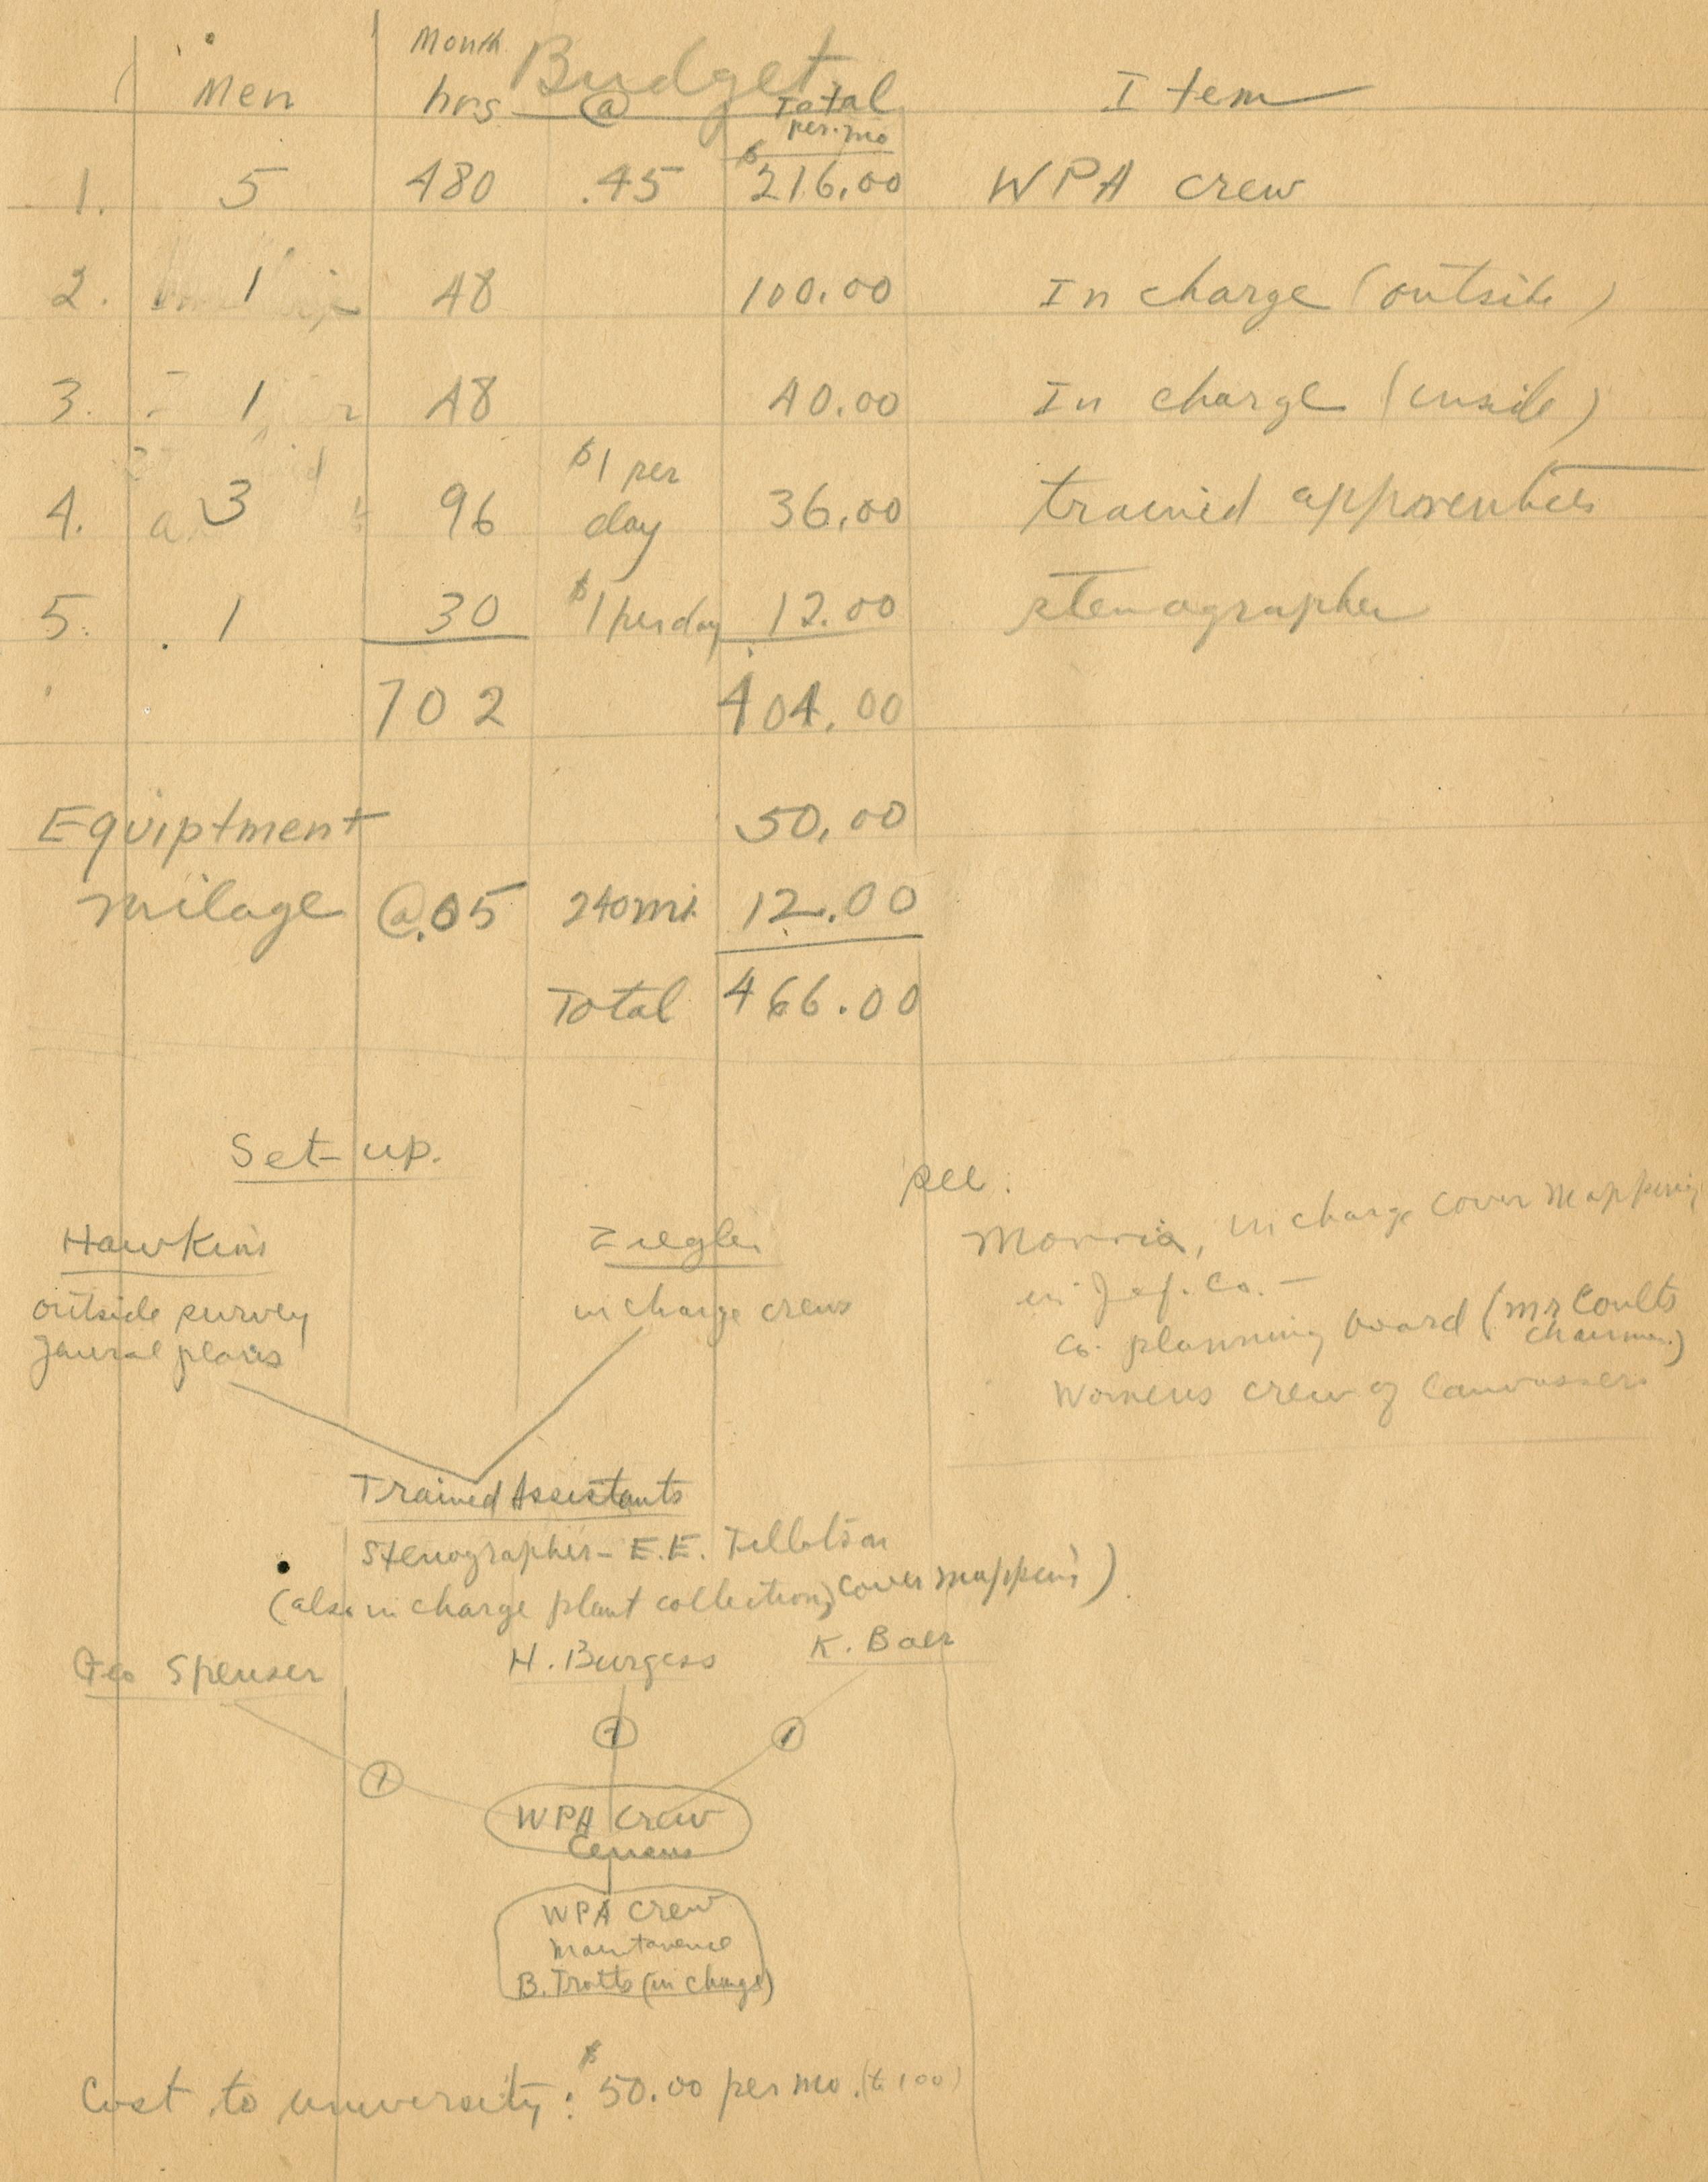 Budget
Men Month hrs @ Total per. mo Item
1. 5 480 .45 $216.00 WPA crew
2. 1 48 100.00 In charge (outside)
3. 1 48 40.00 In charge (inside)
4. 3 96 $1 per day 36.00 trained apprentices
5. 1 30 $1 per day 12.00 stenographer
702 404.00
Equiptment 50.00
milage @.05 240 mi 12.00
Total 466.00
Set-up.
Hawkins
outside survey
general plans
Ziegler
in charge crews
see:
Morris, in charge cover mapping
in Jef. Co. —
co. planning board (Mr Coults
chairman)
Womens crew of canvassers
Trained Assistants
Stenographer - E.E. Tillotson
(also in charge plant collection, cover mapping)
Geo Spenser H. Burgess K. Baer
1 1 1
WPA Crew
Census
WPA crew
maintanence
B. Trotts (in charge)
Cost to university: $50.00 per mo. (to 100)